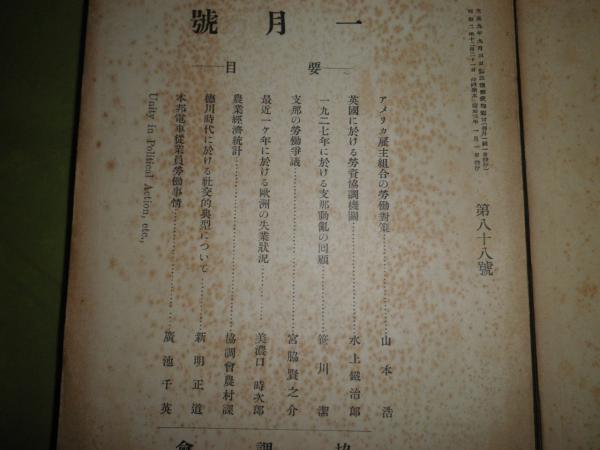 第八十八號
一月號
要目
アメリカ雇主組合の勞働對策……山本浩
英國に於ける勞資協調機關……水上鐵治郎
一九二七年に於ける支那動亂の回顧……笹川潔
支那の勞働爭議……宮脇賢之介
最近一ケ年に於ける歐洲の失業狀況……美濃口時次郎
農業經濟統計……協調會農村課
德川時代に於ける社交的典型について……新明正道
本邦電車從業員勞働事情……廣池千英
Unity in Political Action, etc.,
協調會